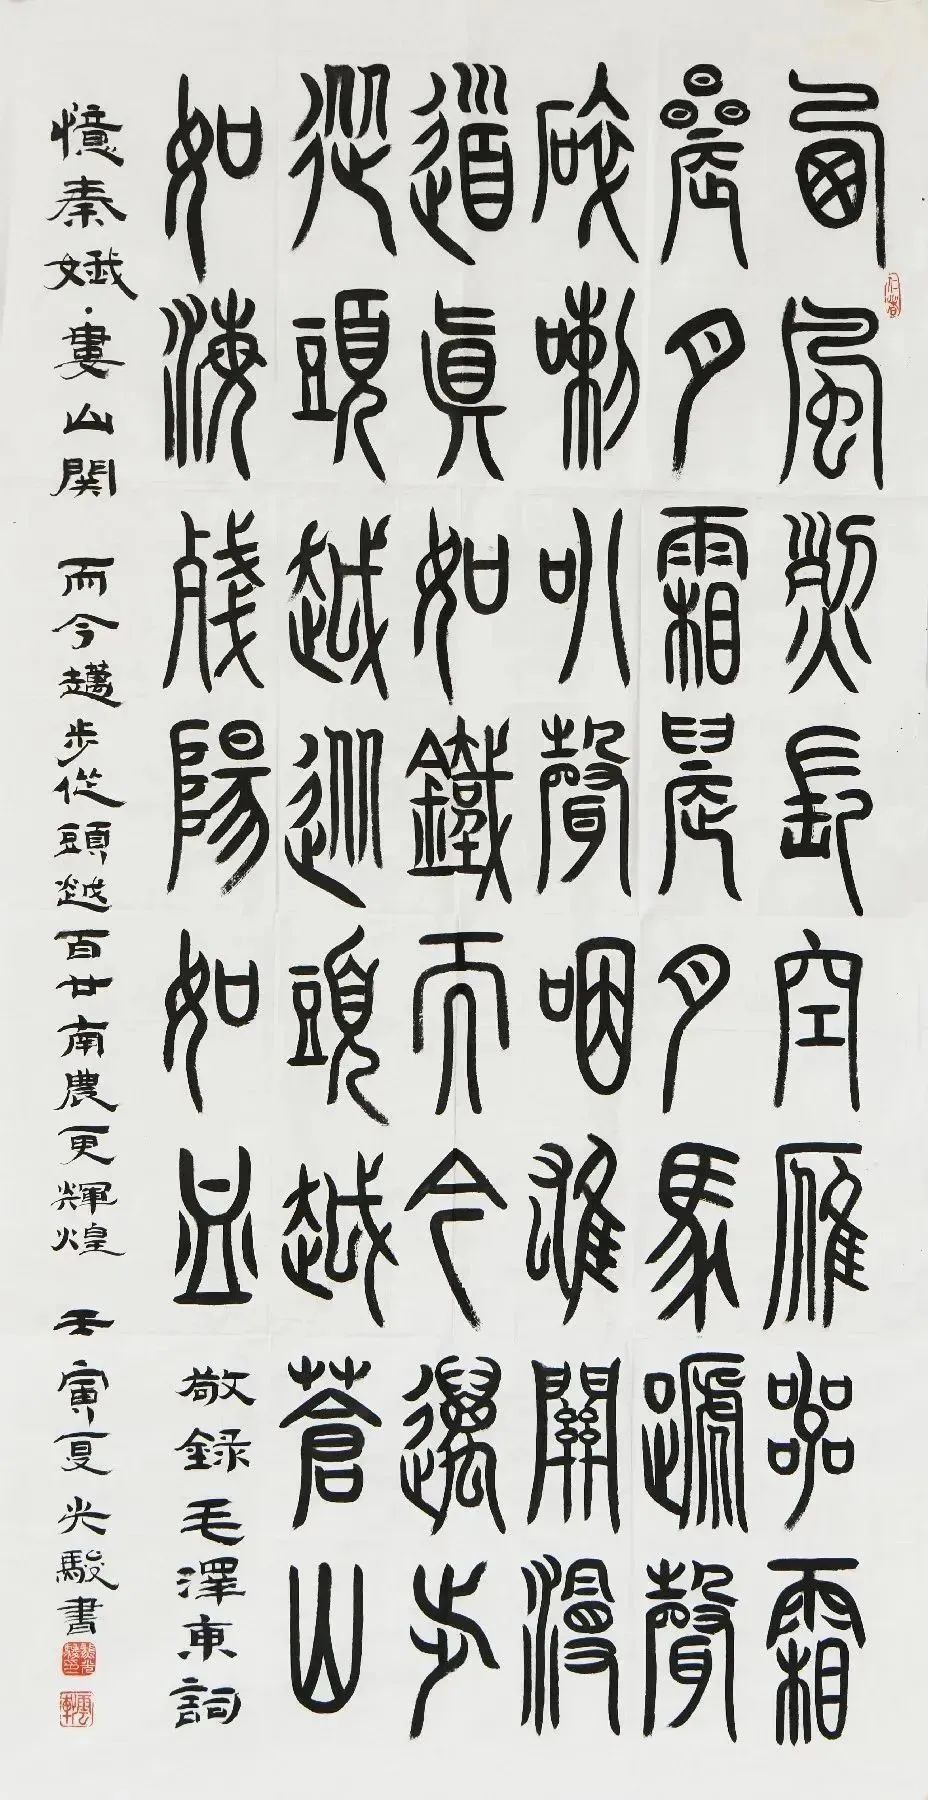 西風烈長空雁叫霜
晨月霜晨月馬蹄聲
碎喇叭聲咽雄關漫
道眞如鐵而今邁步
從頭越從頭越蒼山
如海殘陽如血 敬録毛澤東詞
憶秦娥·婁山関 而今邁步從頭越百廿南農更輝煌 壬寅夏光駿書
仁者